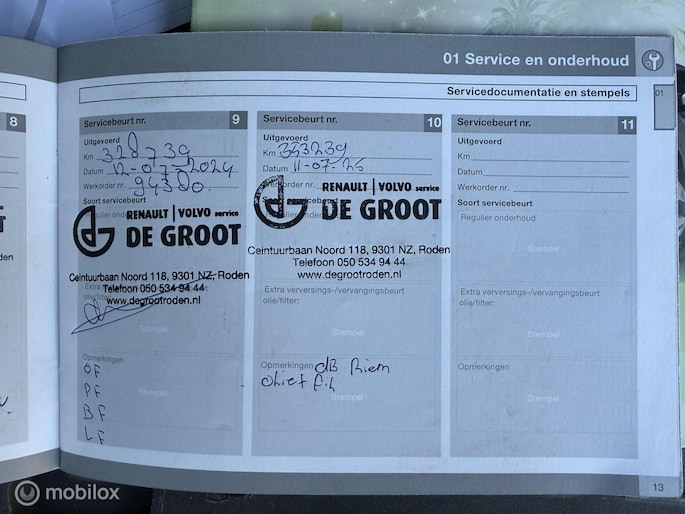 01 Service en onderhoud
Servicedocumentatie en stempels
01
8
Servicebeurt nr. 9
Uitgevoerd
Km 328739
Datum 12-07-2024
Werkorder nr. 94380.
Soort servicebeurt
Regulier onderhoud
RENAULT | VOLVO service
DE GROOT
Ceintuurbaan Noord 118, 9301 NZ, Roden
Telefoon 050 534 94 44
www.degrootroden.nl
Extra
olie/filter:
Stempel
Opmerkingen
OF
PF
BF
LF
Servicebeurt nr. 10
Uitgevoerd
Km 343239
Datum 11-07-25
Werkorder nr.
Soort servicebeurt
Regulier onderhoud
RENAULT | VOLVO service
DE GROOT
Ceintuurbaan Noord 118, 9301 NZ, Roden
Telefoon 050 534 94 44
www.degrootroden.nl
Extra verversings-/vervangingsbeurt
olie/filter:
Stempel
Opmerkingen dB Riem
Stempel
Servicebeurt nr. 11
Uitgevoerd
Km
Datum
Werkorder nr.
Soort servicebeurt
Regulier onderhoud
Stempel
Extra verversings-/vervangingsbeurt
olie/filter:
Stempel
Opmerkingen
Stempel
13
mobilox